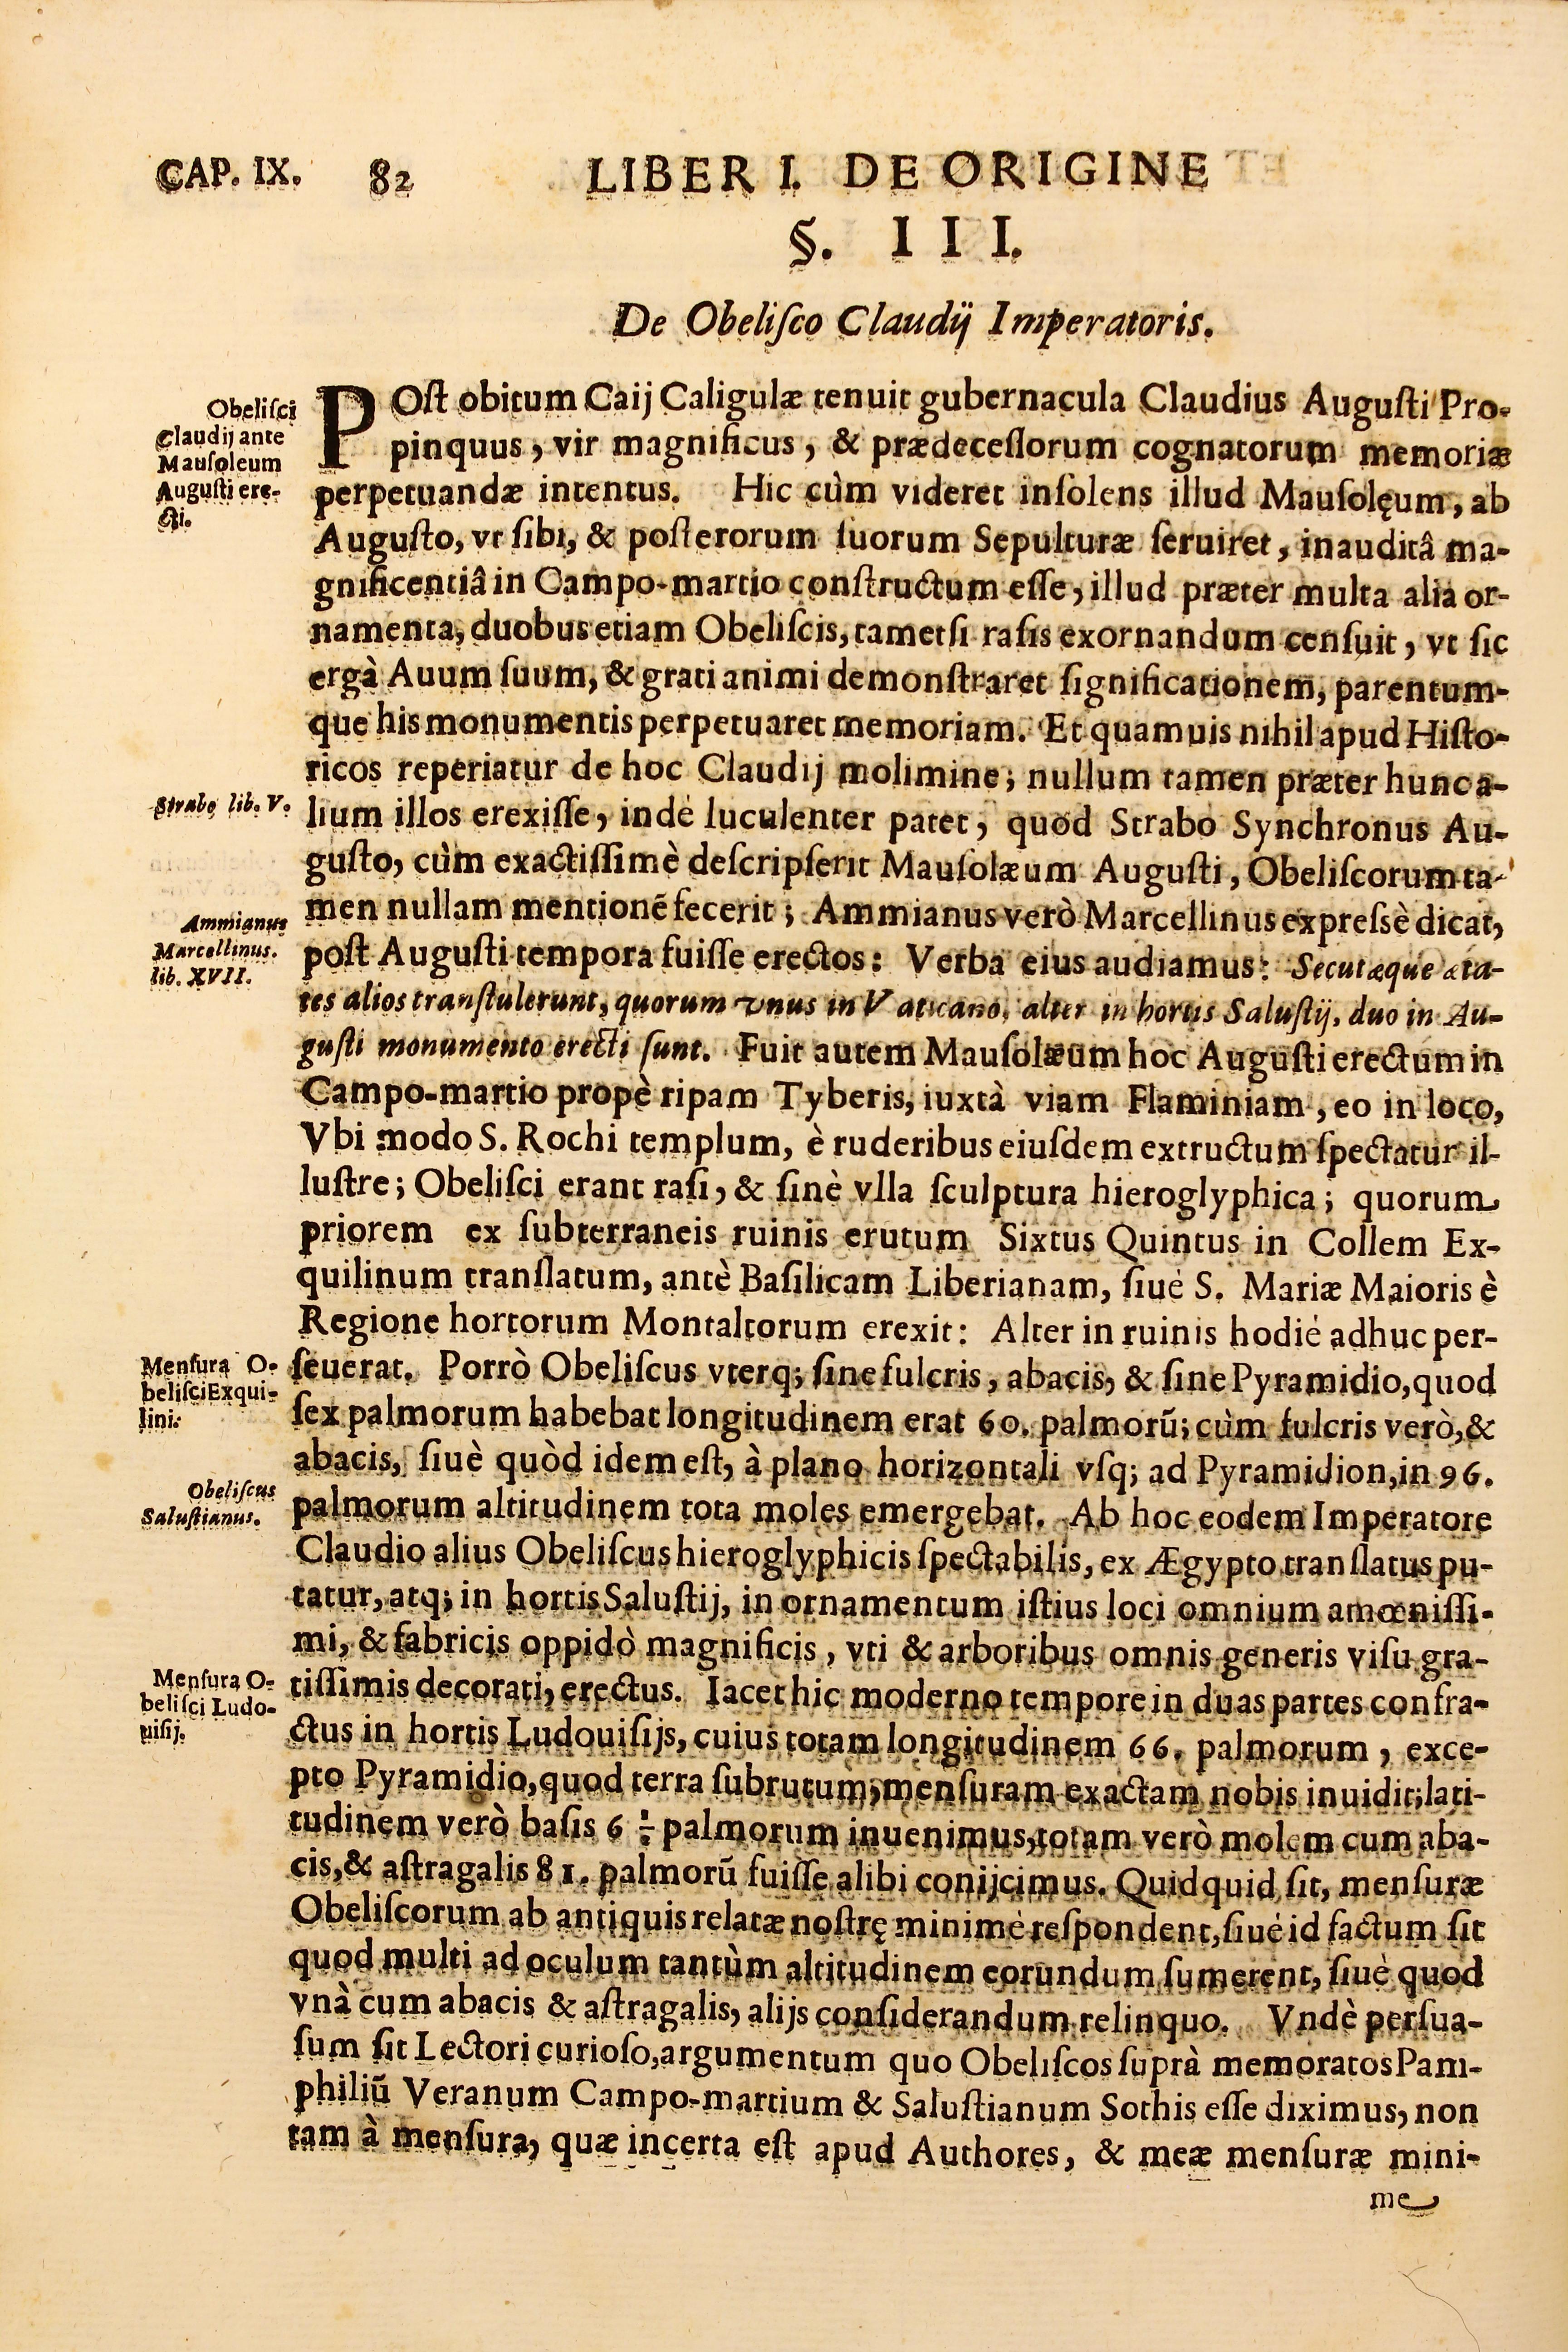 CAP. IX. 82 LIBER I. DE ORIGINE
§. III.
De Obeliſco Claudij Imperatoris.
Obeliſci
Claudij ante
Mauſoleum
Auguſti ere-
cti.
POſt obitum Caij Caligulæ tenuit gubernacula Claudius Auguſti Pro-
pinquus, vir magnificus, & prædeceſſorum cognatorum memoriæ
perpetuandæ intentus. Hic cùm videret inſolens illud Mauſolęum, ab
Auguſto, vt ſibi, & poſterorum ſuorum Sepulturæ ſeruiret, inauditâ ma-
gnificentiâ in Campo-martio conſtructum eſſe, illud præter multa alia or-
namenta, duobus etiam Obeliſcis, tametſi raſis exornandum cenſuit, vt ſic
ergà Auum ſuum, & grati animi demonſtraret ſignificationem, parentum-
que his monumentis perpetuaret memoriam. Et quamuis nihil apud Hiſto-
ricos reperiatur de hoc Claudij molimine; nullum tamen præter hunc a-
Strabo lib. V.
lium illos erexiſſe, indè luculenter patet, quòd Strabo Synchronus Au-
guſto, cùm exactiſſimè deſcripſerit Mauſolæum Auguſti, Obeliſcorum ta-
Ammianus
Marcellinus.
lib. XVII.
men nullam mentionē fecerit; Ammianus verò Marcellinus expreſsè dicat,
poſt Auguſti tempora fuiſſe erectos: Verba eius audiamus: Secutæque æta-
tes alios tranſtulerunt, quorum vnus in Vaticano, alter in hortis Saluſtij, duo in Au-
guſti monumento erecti ſunt. Fuit autem Mauſolæum hoc Auguſti erectum in
Campo-martio propè ripam Tyberis, iuxtà viam Flaminiam, eo in loco,
Vbi modo S. Rochi templum, è ruderibus eiuſdem extructum ſpectatur il-
luſtre; Obeliſci erant raſi, & ſinè vlla ſculptura hieroglyphica; quorum
priorem ex ſubterraneis ruinis erutum Sixtus Quintus in Collem Ex-
quilinum tranſlatum, antè Baſilicam Liberianam, ſiuè S. Mariæ Maioris è
Regione hortorum Montaltorum erexit: Alter in ruinis hodiè adhuc per-
Menſura O-
beliſci Exqui-
lini.
ſeuerat. Porrò Obeliſcus vterq; ſine fulcris, abacis, & ſine Pyramidio, quod
ſex palmorum habebat longitudinem erat 60. palmorū; cùm fulcris verò, &
abacis, ſiuè quòd idem eſt, à plano horizontali vſq; ad Pyramidion, in 96.
Obeliſcus
Saluſtianus.
palmorum altitudinem tota moles emergebat. Ab hoc eodem Imperatore
Claudio alius Obeliſcus hieroglyphicis ſpectabilis, ex Ægypto tranſlatus pu-
tatur, atq; in hortis Saluſtij, in ornamentum iſtius loci omnium amœniſſi-
mi, & fabricis oppidò magnificis, vti & arboribus omnis generis viſu gra-
Menſura O-
beliſci Ludo-
uiſij.
tiſſimis decorati, erectus. Iacet hic moderno tempore in duas partes confra-
ctus in hortis Ludouiſijs, cuius totam longitudinem 66. palmorum, exce-
pto Pyramidio, quod terra ſubrutum, menſuram exactam nobis inuidit; lati-
tudinem verò baſis 6 palmorum inuenimus, totam verò molem cum aba-
cis, & aſtragalis 81. palmorū fuiſſe alibi conijcimus. Quidquid ſit, menſuræ
Obeliſcorum ab antiquis relatæ noſtrę minimè reſpondent, ſiuè id factum ſit
quod multi ad oculum tantùm altitudinem eorundum ſumerent, ſiuè quod
vnà cum abacis & aſtragalis, alijs conſiderandum relinquo. Vndè perſua-
ſum ſit Lectori curioſo, argumentum quo Obeliſcos ſuprà memoratos Pam-
philiū Veranum Campo-martium & Saluſtianum Sothis eſſe diximus, non
tam à menſura, quæ incerta eſt apud Authores, & meæ menſuræ mini-
me